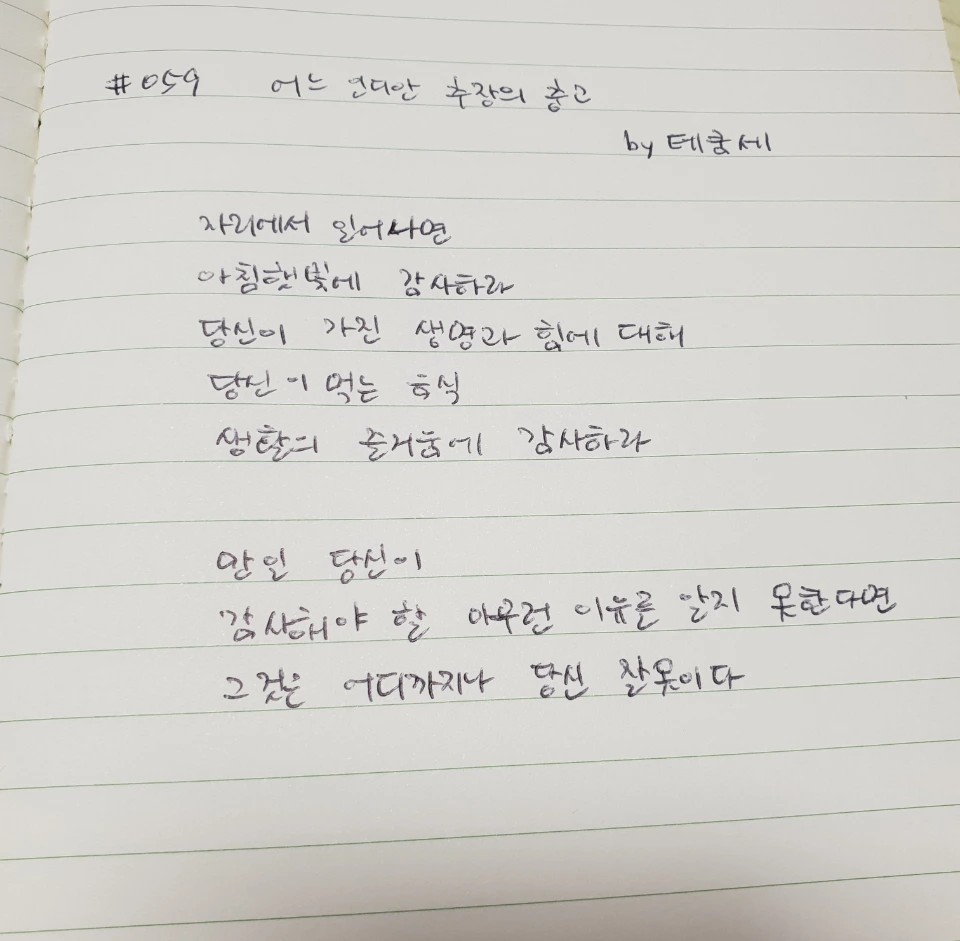 #059 어느 인디안 추장의 충고
by 테쿰세
자리에서 일어나면
아침햇빛에 감사하라
당신이 가진 생명과 힘에 대해
당신이 먹는 음식
생활의 즐거움에 감사하라
만일 당신이
감사해야 할 아무런 이유를 알지 못한다면
그것은 어디까지나 당신 잘못이다